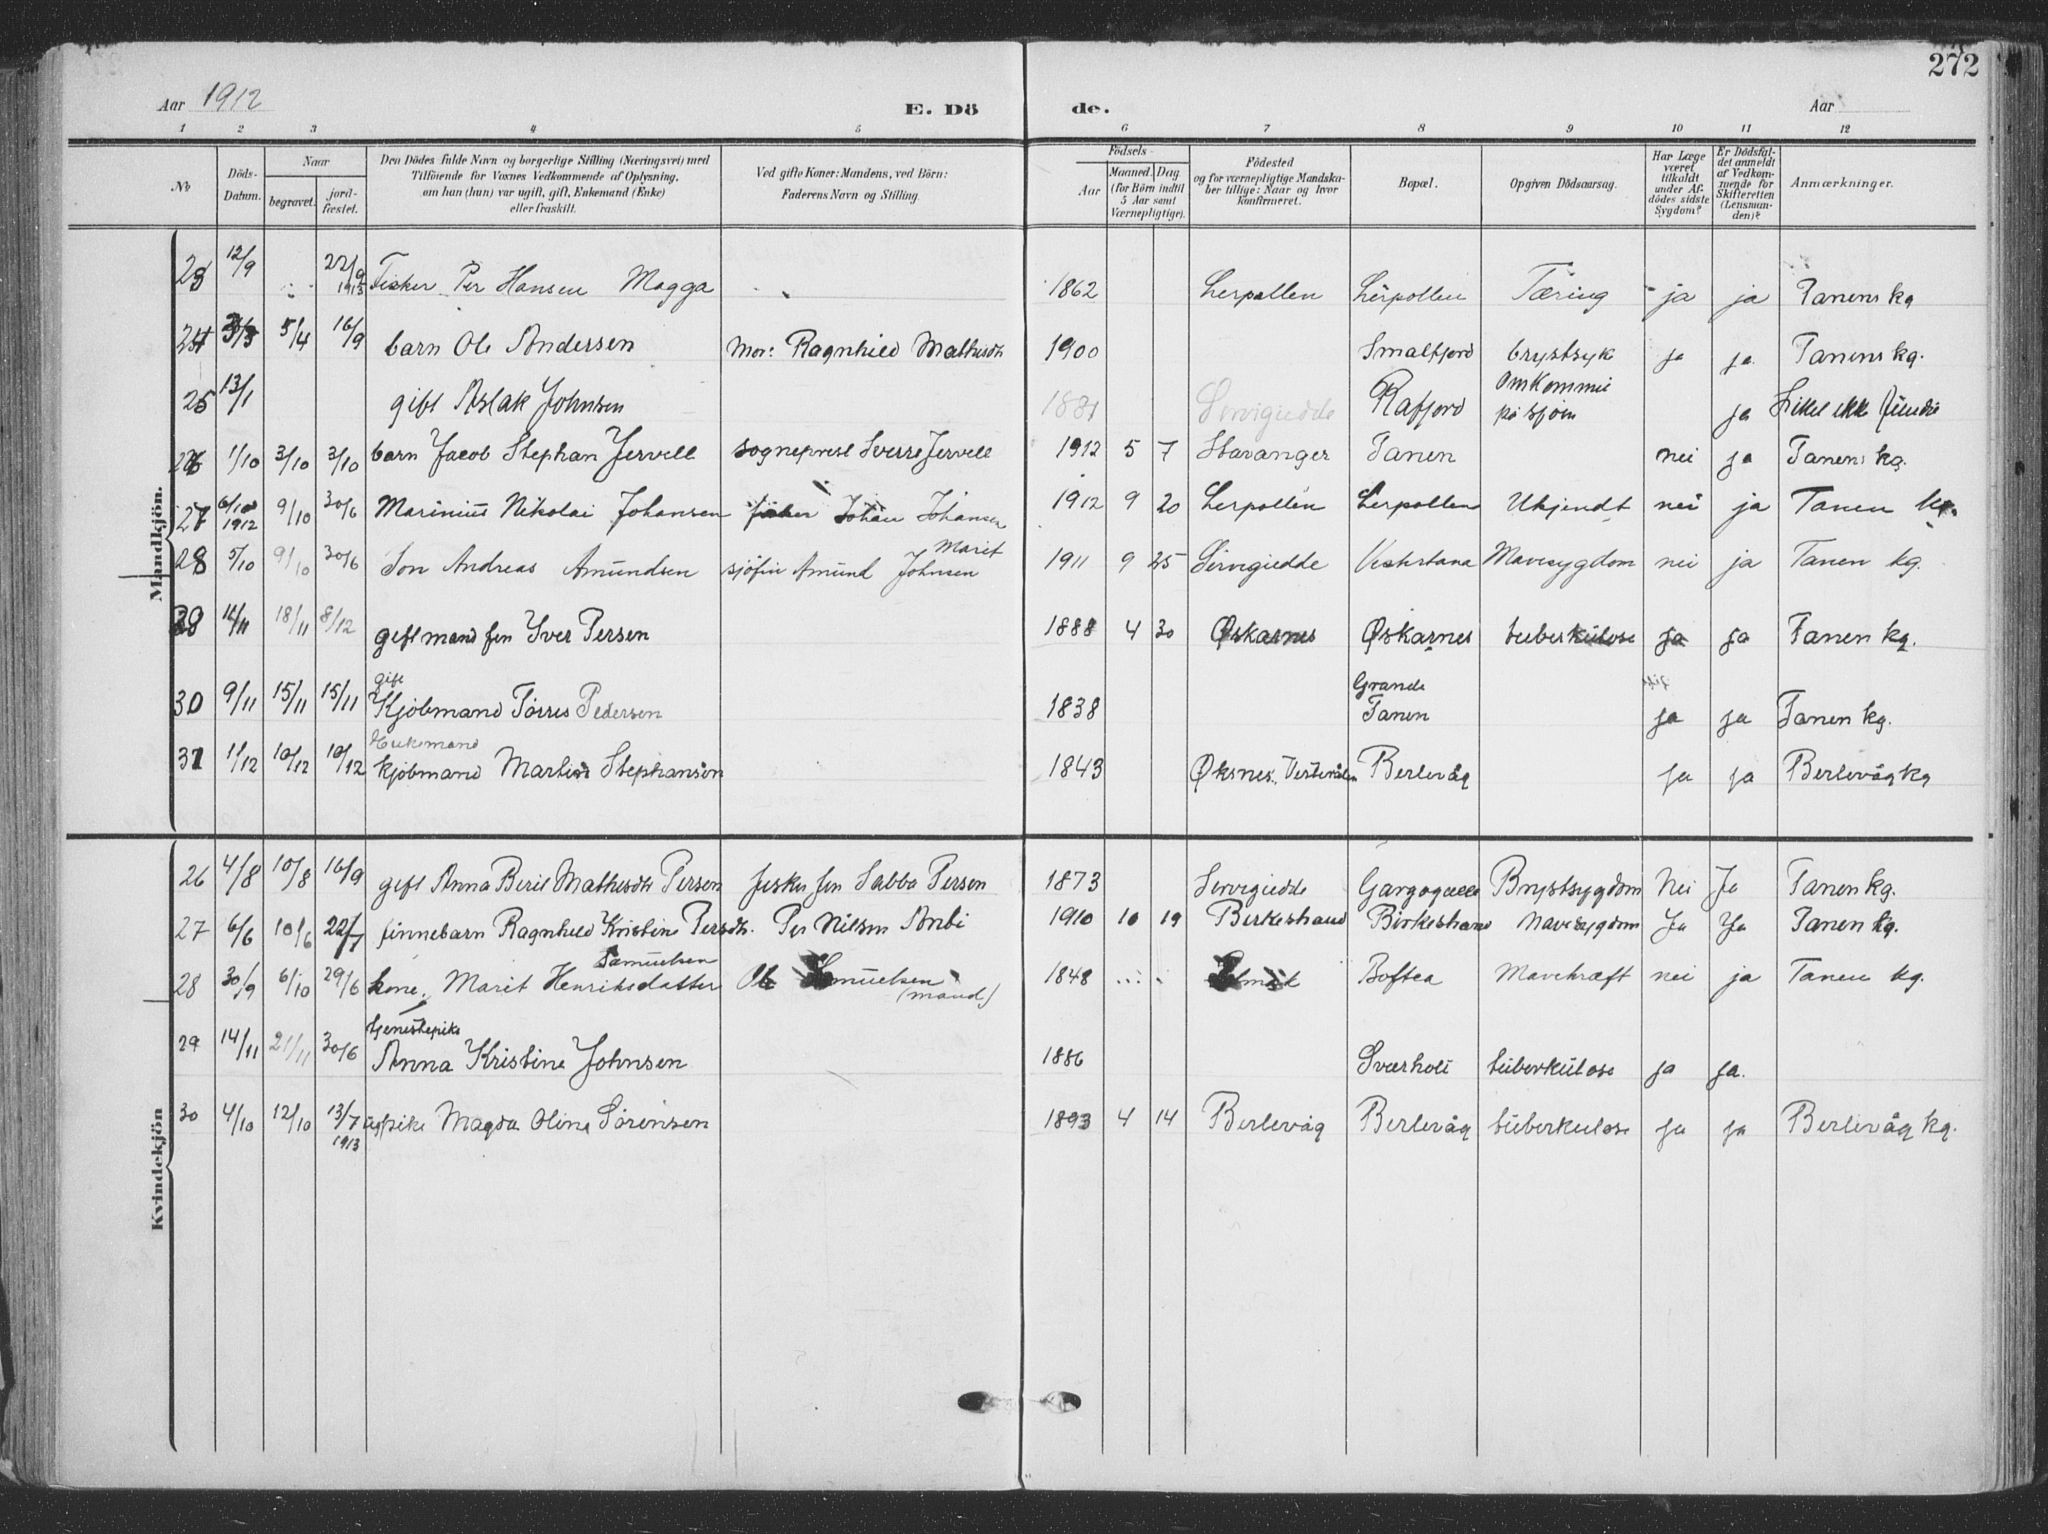 272
Aar 1912 E. Dö de. Aar
1 2 3 4 5 6 7 8 9 10 11 12
No
Döds-Datum.
Naar
begravet.
jord-fæstet.
Den Dödes fulde Navn og borgerlige Stilling (Næringsvei) med
Tilföiende for Voxnes Vedkommende af Oplysning,
om han (hun) var ugift, gift, Enkemand (Enke)
eller fraskilt.
Ved gifte Koner: Mandens, ved Börn:
Faderens Navn og Stilling.
Födsels-
Aar
Maaned. Dag
(for Börn indtil
5 Aar samt
Værnepligtige).
Födested
og for værnepligtige Mandska-
ber tillige: Naar og hvor
Konfirmeret.
Bopæl.
Opgiven Dödsaarsag.
Har Læge
været
tilkaldt
under Af-
dödes sidste
Sygdom?
Er Dödsfal-
det anmeldt
af Vedkom-
mende for
Skifteretten
(Lensman-
den)?
Anmærkninger.
Mandkjön.
23 12/9 22/9 1913 Fisker Per Hansen Magga 1862 Lerpollen Lerpollen Tæring ja ja Tanens kg
24 5/4 16/9 barn Ole Andersen Mor: Ragnhild Mathisdt 1900 Smalfjord brystsyk ja ja Tanens kg.
25 13/1 gift Aslak Johnsen 1881 Sirvigiedde Rafjord Omkommie på sjøin ja
26 1/10 3/10 3/10 barn Jacob Stephan Jervell sogneprest Sverre Jervell 1912 5 7 Stavanger Tanen nei ja Tanens kg.
27 6/10 1912 9/10 30/6 Marinius Nikolai Johansen fisker Johan Johansen 1912 9 20 Lerpollen Lerpollen Ukjendt nei ja Tanen kg.
28 5/10 9/10 30/6 Son Andreas Amundsen sjöfin Amund Johnsen Marit 1911 9 25 Sirvigiedde Vestertana Mavesygdom nei ja Tanen kg.
29 14/11 18/11 8/12 gift mand fin Iver Persen 1888 4 30 Øskarnes Øskarnes tuberkulose ja ja Tanen kg.
30 9/11 15/11 15/11 gift Kjöbmand Törres Pedersen 1838 Grande Tanen ja ja Tanen kg.
31 1/12 10/12 10/12 Enkemand kjöbmand Martin Stephansen 1843 Øksnes, Vesterålen Berlevåg ja ja Berlevåg kg
Kvindekjön
26 4/8 10/8 16/9 gift Anna Berit Mathisdt Persen fisker fin Sabba Persen 1873 Sirvigiedde Brystsygdom Nei Ja Tanen kg.
27 6/6 10/6 22/7 finnebarn Ragnhild Kristine Persdt. Per Nilsen Anti 1910 10 19 Birkestrand Birkestrand Mavesygdom Ja Ja Tanen kg.
28 30/9 6/10 29/6 kone, Marit Henriksdatter Samuelsen Ole Samuelsen (mand) 1848 Boftca Mavekræft nei ja Tanen kg.
29 14/11 21/11 30/6 tjenestepike Anna Kristine Johnsen 1886 Sværholt tuberkulose ja ja.
30 4/10 12/10 13/7 1913 ug. pike Magda Oline Sörensen 1893 4 14 Berlevåg Berlevåg tuberkulose ja ja Berlevåg kg.